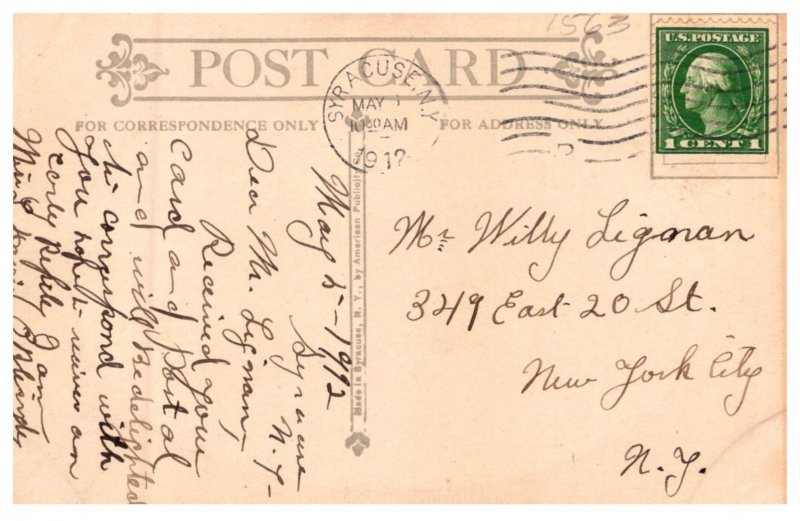 1563
POST CARD
FOR CORRESPONDENCE ONLY
FOR ADDRESS ONLY
SYRACUSE, N.Y.
MAY
10 30 AM
1912
U.S. POSTAGE
1 CENT 1
Made in Syracuse, N. Y., by American Publicity
Mr Willy Ligman
349 East 20 St.
New York City
N.Y.
May 5-1912
Syracuse
N.Y-
Dear Mr. Ligman,
Received your
card and Postal
and will be delighted
to correspond with
you hope to reciver an
early Reply I am